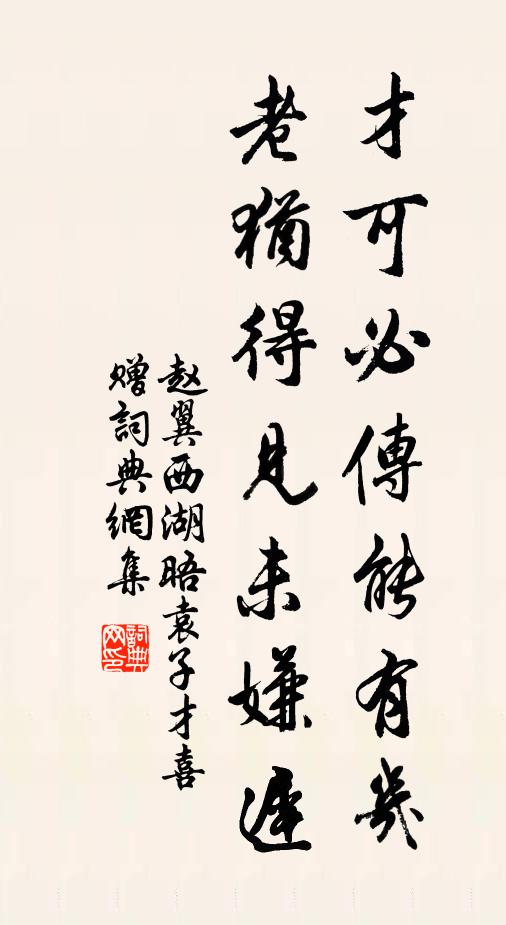 才可必傳能有幾
老猶得見未嫌遲
赵翼西湖晤袁子才喜
赠詞典網集
詞典網印